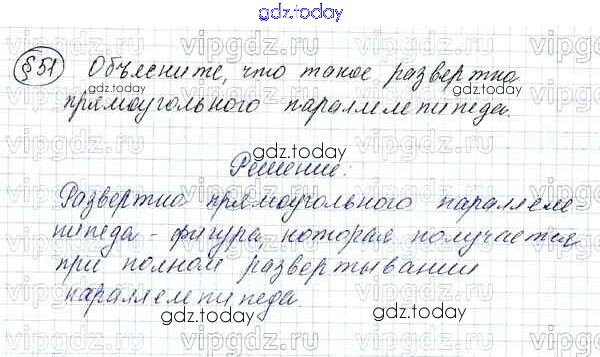 gdz.today
§51 Объясните, что такое развертка
прямоугольного параллелепипеда.
gdz.today
Решение:
Развертка прямоугольного параллеле-
пипеда - фигура, которая получается
при полном развертывании
параллелепипеда.
gdz.today
vipgdz.ru